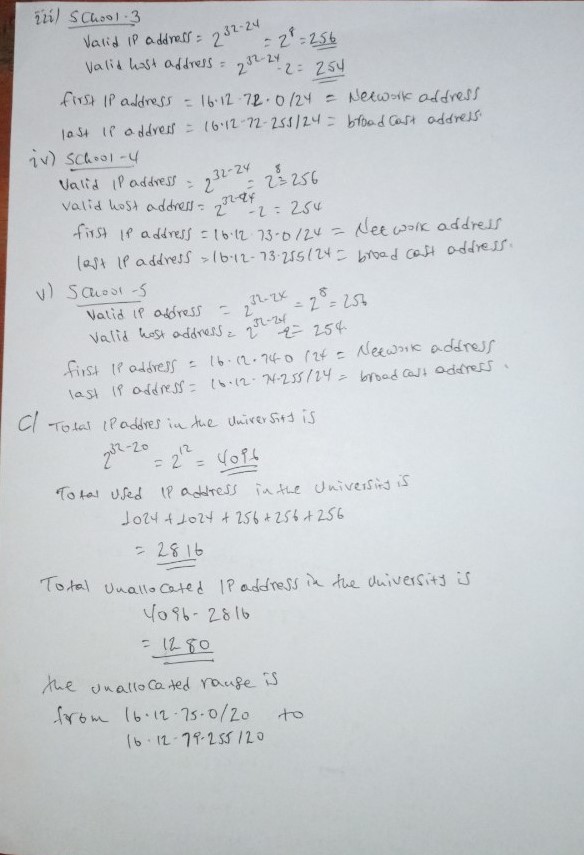 iii) School-3
Valid IP address = 2^32-24 = 2^8 = 256
Valid host address = 2^32-24 -2 = 254
first IP address = 16.12.72.0/24 = Network address
last IP address = 16.12.72.255/24 = broad cast address.
iv) School-4
Valid IP address = 2^32-24 = 2^8 = 256
Valid host address = 2^32-24 -2 = 254
first IP address = 16.12.73.0/24 = Net work address
last IP address = 16.12.73.255/24 = broad cast address.
v) School-5
Valid IP address = 2^32-24 = 2^8 = 256
Valid host address = 2^32-24 -2 = 254.
first IP address = 16.12.74.0/24 = Network address
last IP address = 16.12.74.255/24 = broad cast address.
C/ Total IP addres in the university is
2^32-20 = 2^12 = 4096
Total used IP address in the university is
1024 + 1024 + 256 + 256 + 256
= 2816
Total unallocated IP address in the university is
4096 - 2816
= 1280
the unallocated range is
from 16.12.75.0/20 to
16.12.79.255/20